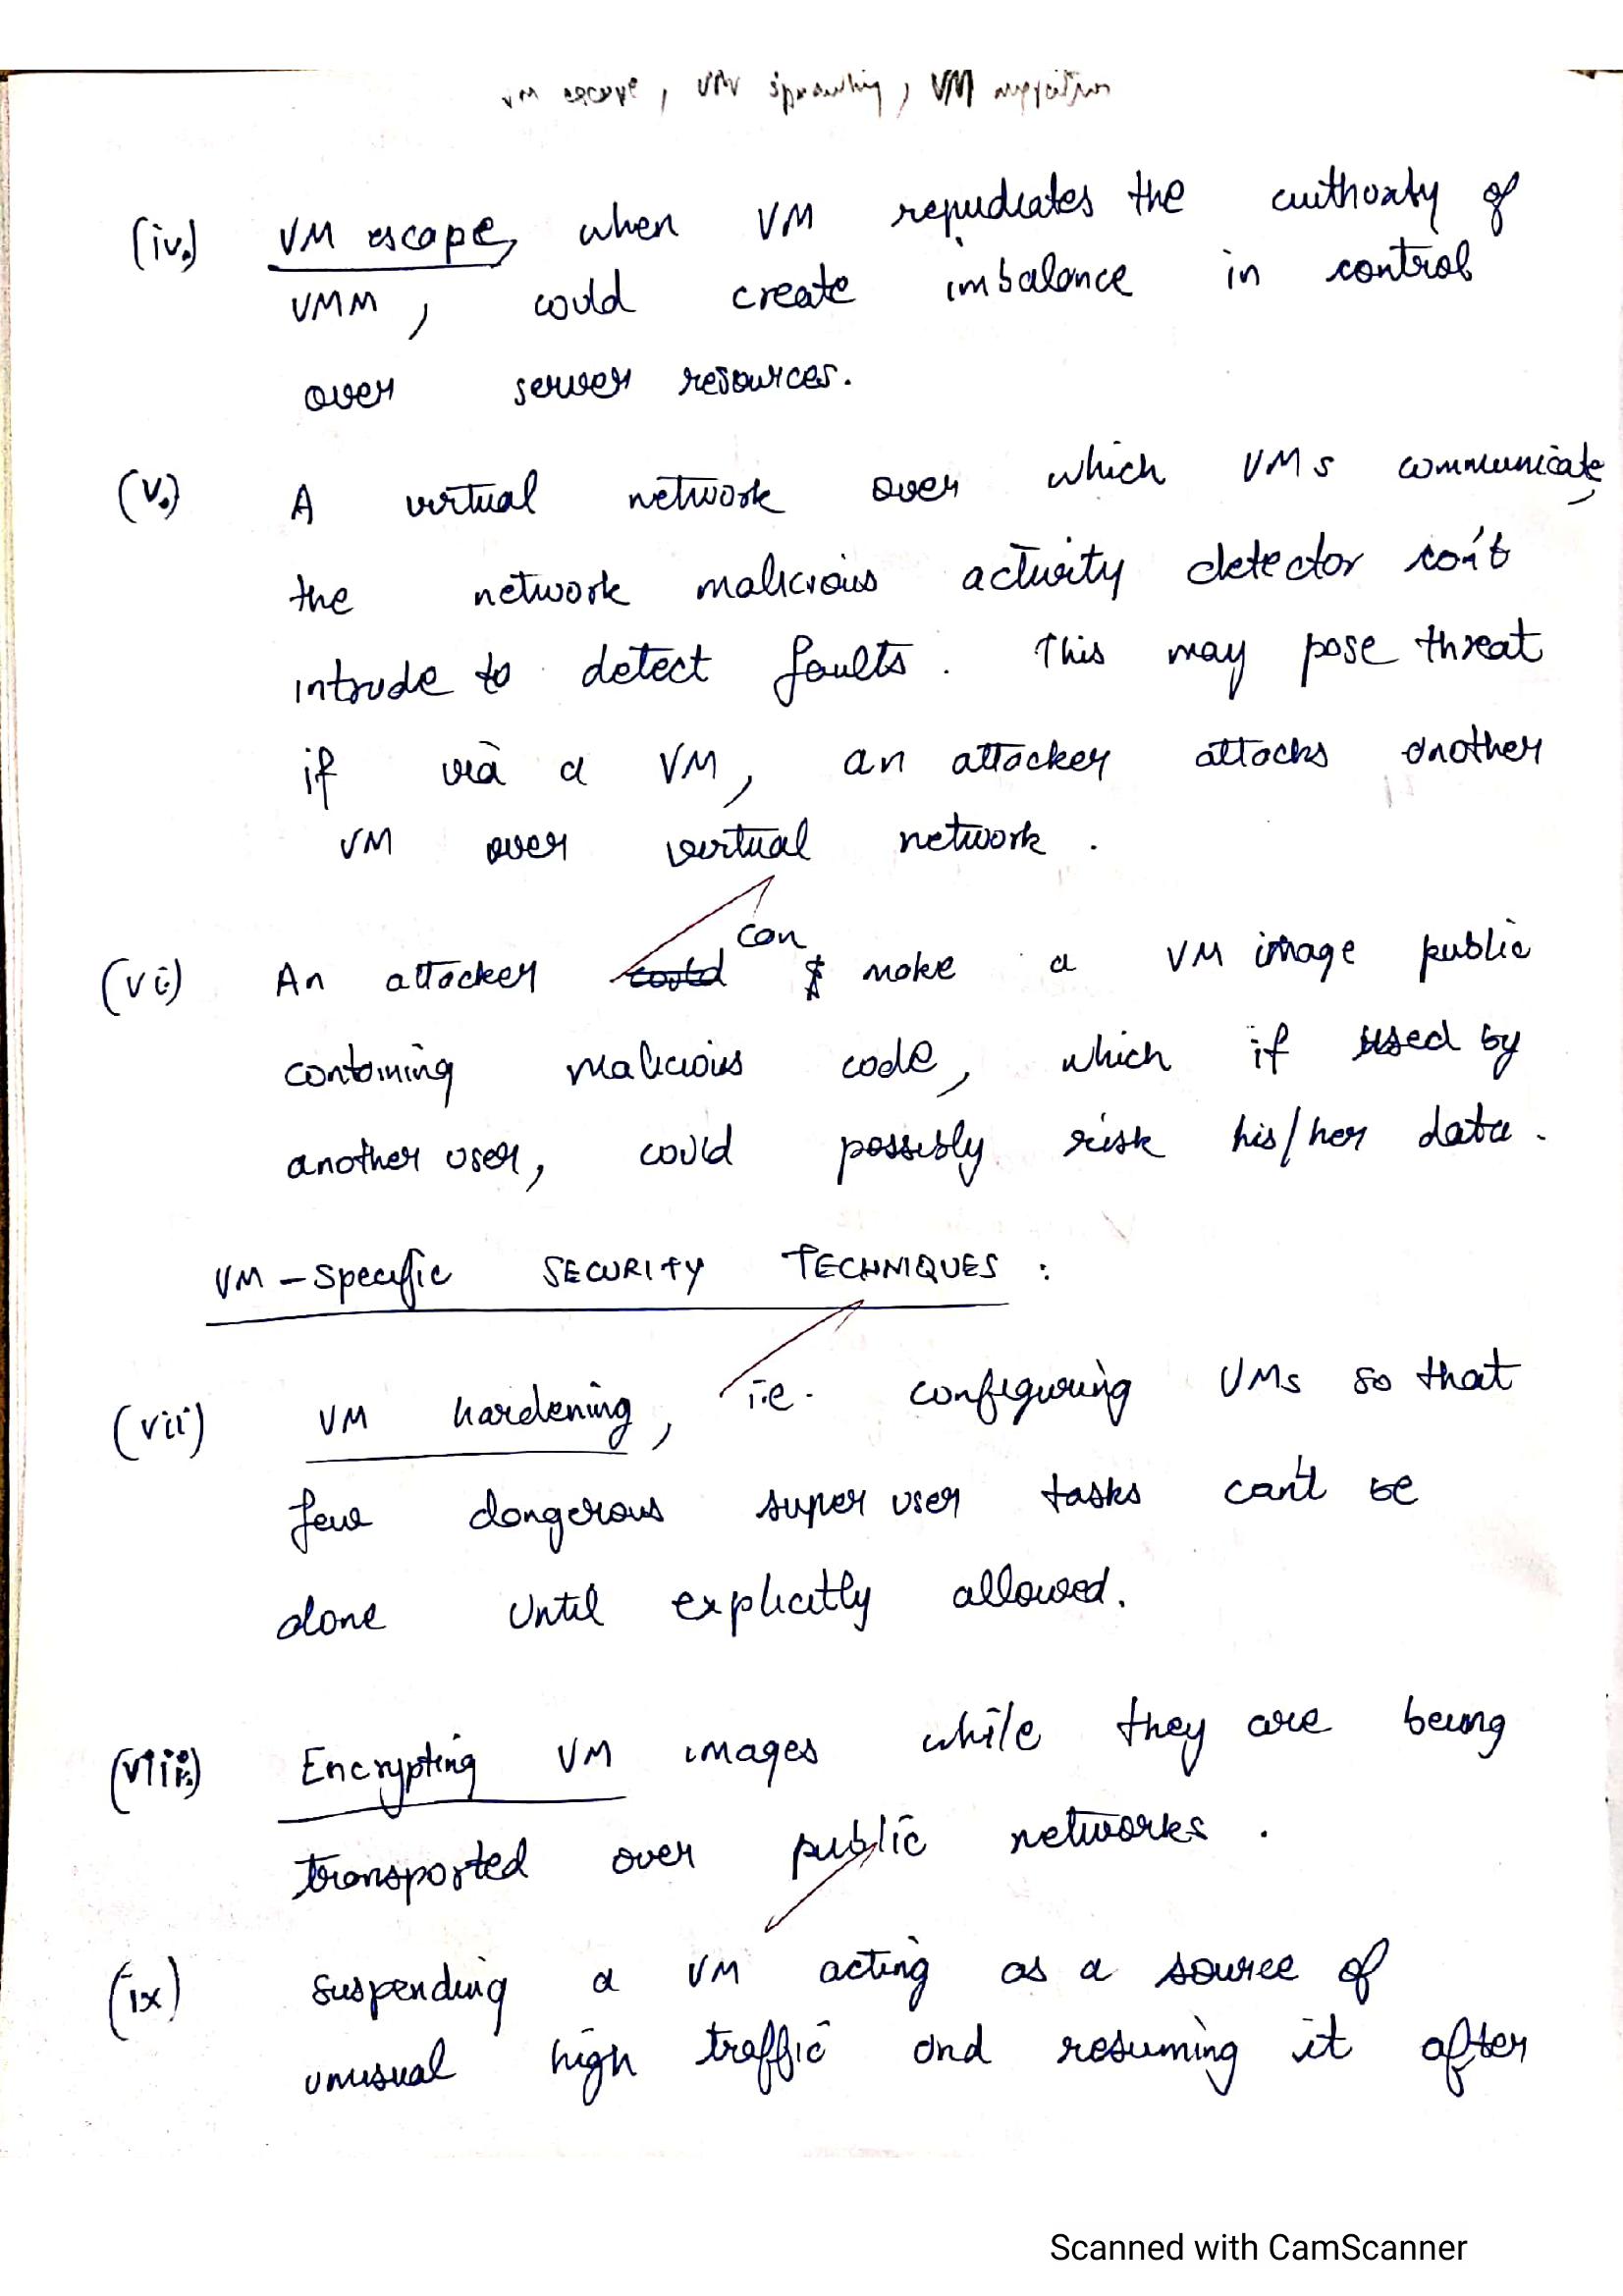 vm escape, VM sprawling, VM migration
(iv.) VM escape, when VM repudiates the authority of
VMM, could create imbalance in control
over server resources.
(v.) A virtual network over which VMs communicate,
the network malicious activity detector can't
intrude to detect faults. This may pose threat
if via a VM, an attacker attacks another
VM over virtual network.
can
(vi) An attacker could make a VM image public
containing malicious code, which if used by
another user, could possibly risk his/her data.
VM-Specific SECURITY TECHNIQUES:
(vii) VM hardening, i.e. configuring VMs so that
few dangerous super user tasks can't be
done until explicitly allowed.
(viii) Encrypting VM images while they are being
transported over public networks.
(ix) Suspending a VM acting as a source of
unusual high traffic and resuming it after
Scanned with CamScanner